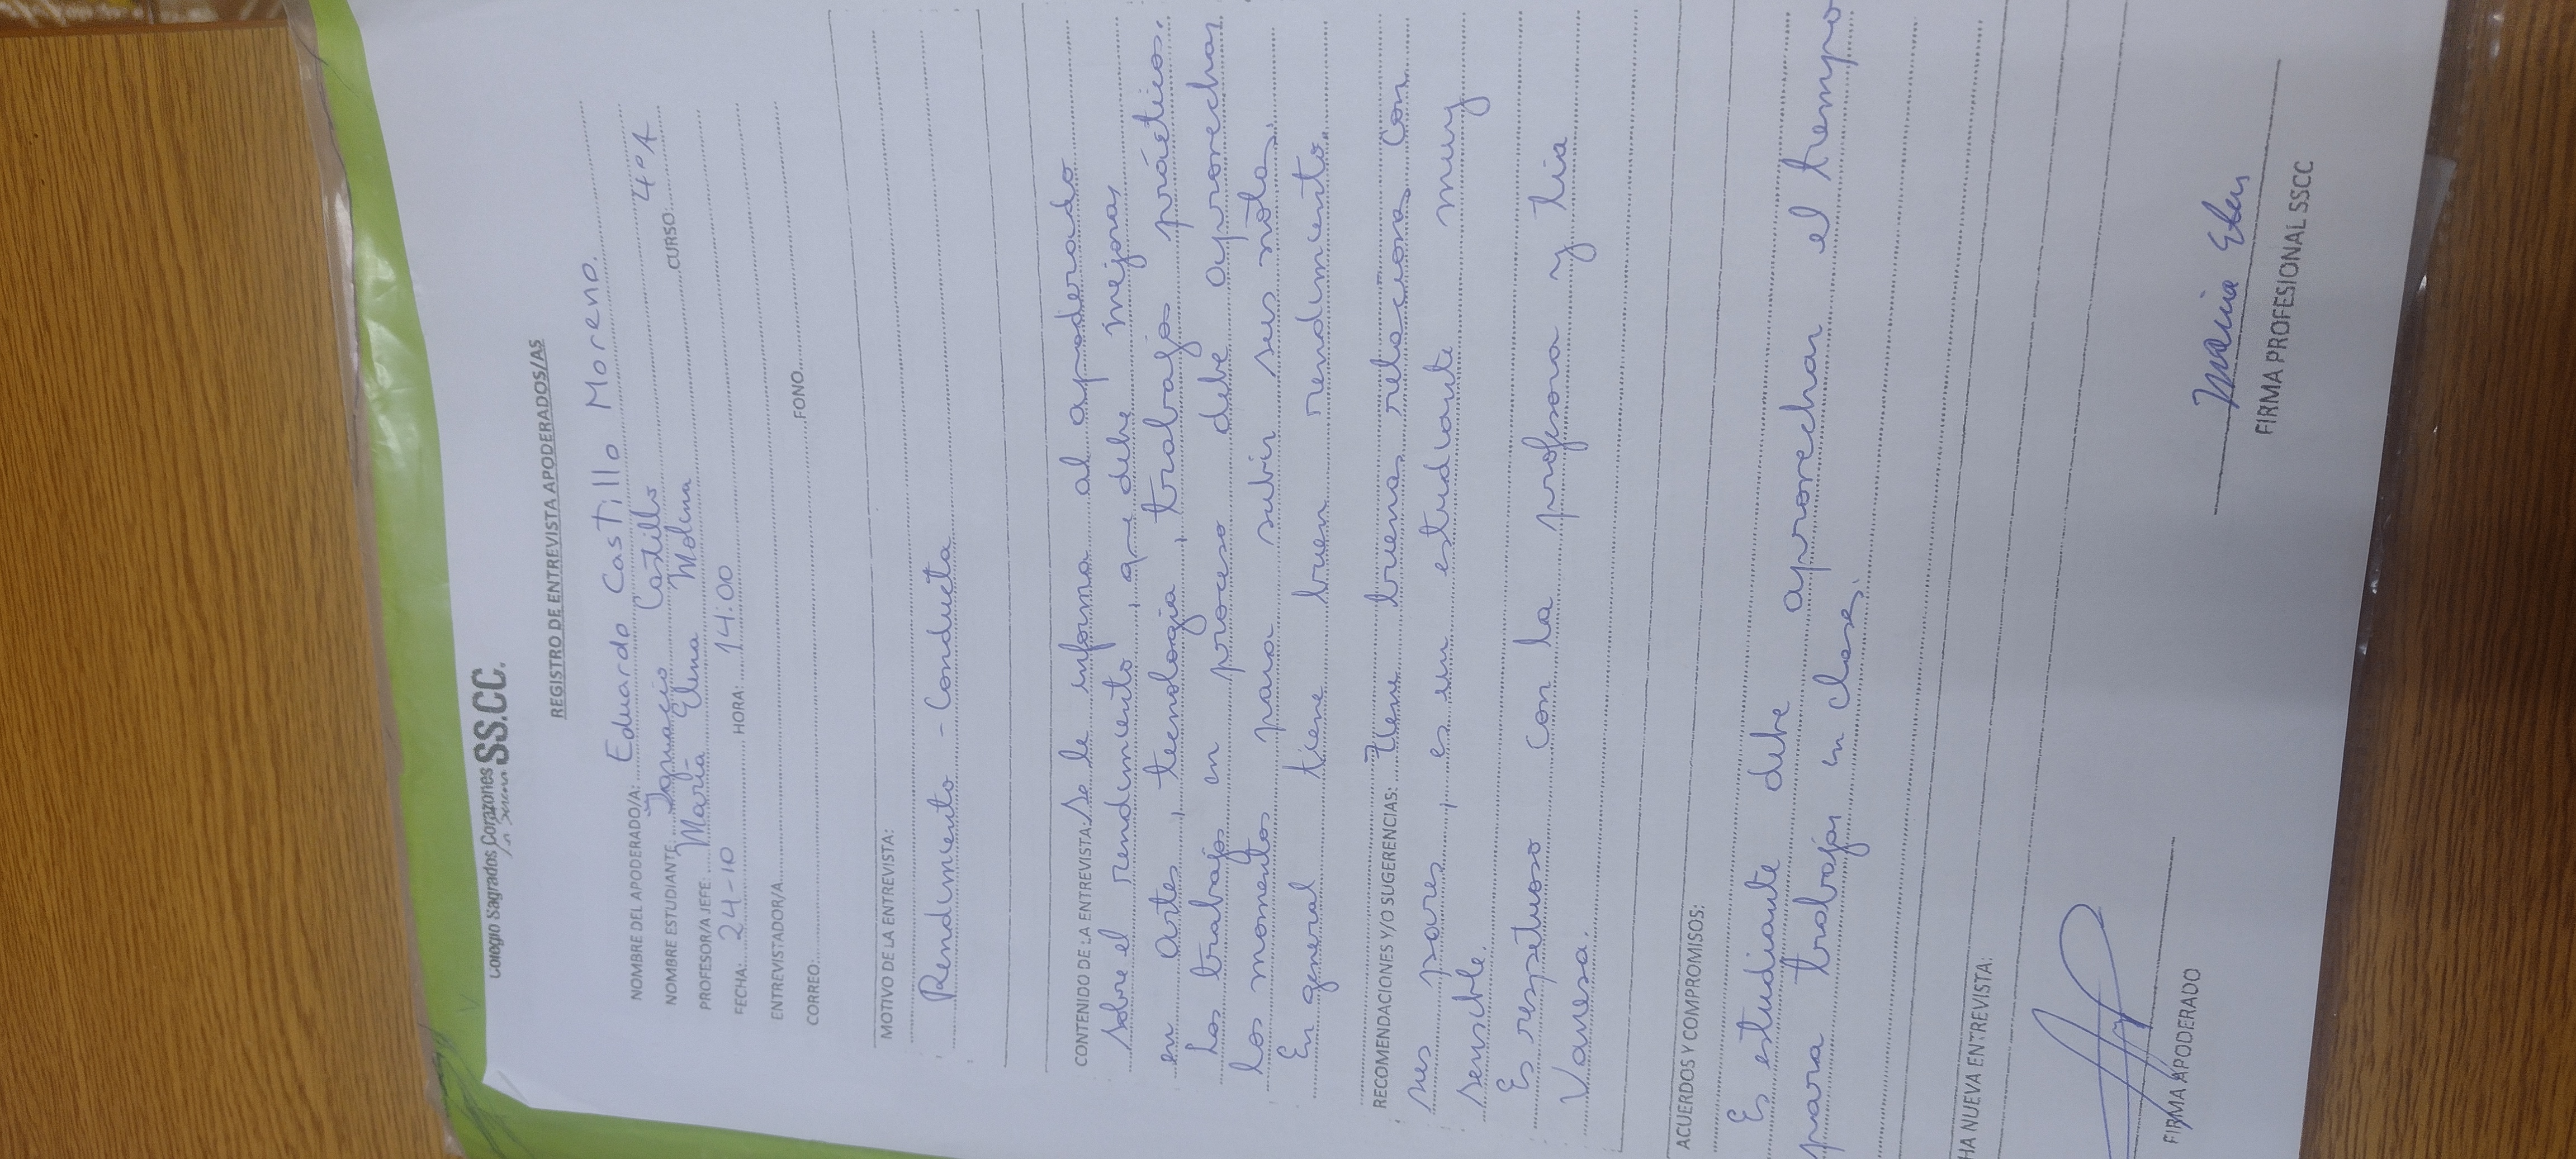 Colegio Sagrados Corazones SS.CC.
La Serena
REGISTRO DE ENTREVISTA APODERADOS/AS
NOMBRE DEL APODERADO/A: Eduardo Castillo Moreno.
NOMBRE ESTUDIANTE Ignacio Castillo CURSO 4°A
PROFESOR/A JEFE: María Elena Molina
FECHA: 24-10 HORA: 14:00
ENTREVISTADOR/A
CORREO: FONO
MOTIVO DE LA ENTREVISTA:
Rendimiento - Conducta
CONTENIDO DE LA ENTREVISTA: Se le informa al apoderado
sobre el rendimiento, que debe mejorar
en artes, tecnologia, trabajos prácticos.
Los trabajos en proceso debe aprovechar
los momentos para subir sus notas.
En general tiene buen rendimiento.
RECOMENDACIONES Y/O SUGERENCIAS: Tiene buenas relaciones con
sus pares, es un estudiante muy
sensible.
Es respetuoso con la profesora y tia
Vanesa.
ACUERDOS Y COMPROMISOS:
Es estudiante debe aprovechar el tiempo
para trabajar en clases.
HA NUEVA ENTREVISTA:
FIRMA APODERADO
FIRMA PROFESIONAL SSCC